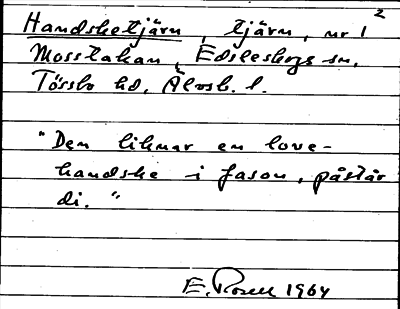 Handsketjärn, tjärn, nr 1 2
Mosstakan, Edsleskogs sn.
Tössbo hd. Älvsb. l.
"Den liknar en love-
handske i fason, påstår
di."
E. Rosell 1964